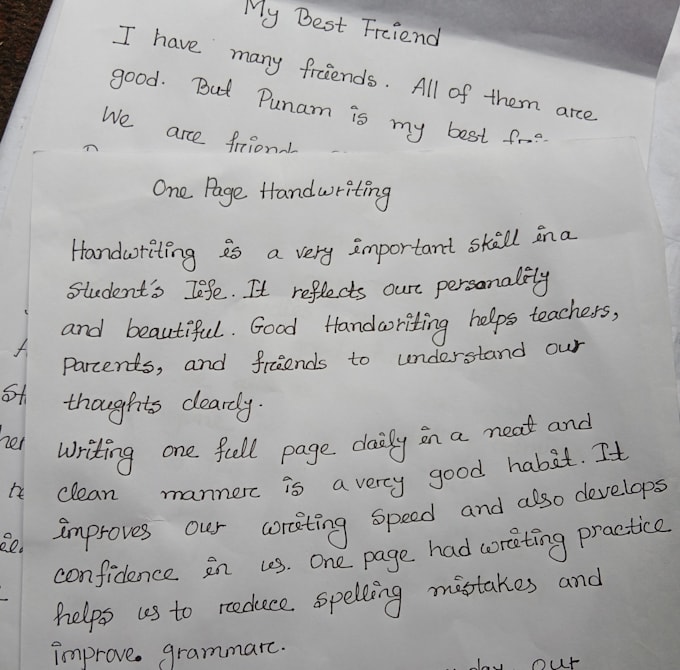 My Best Friend
I have many friends. All of them are
good. But Punam is my best
We are friend
One Page Handwriting
Handwriting is a very important skill in a
Student's Life. It reflects our personality
and beautiful. Good Handwriting helps teachers,
Parents, and friends to understand our
thoughts clearly.
Writing one full page daily in a neat and
clean manner is a very good habit. It
improves our writing speed and also develops
confidence in us. One page had writing practice
helps us to reduce spelling mistakes and
improve. grammar.
our